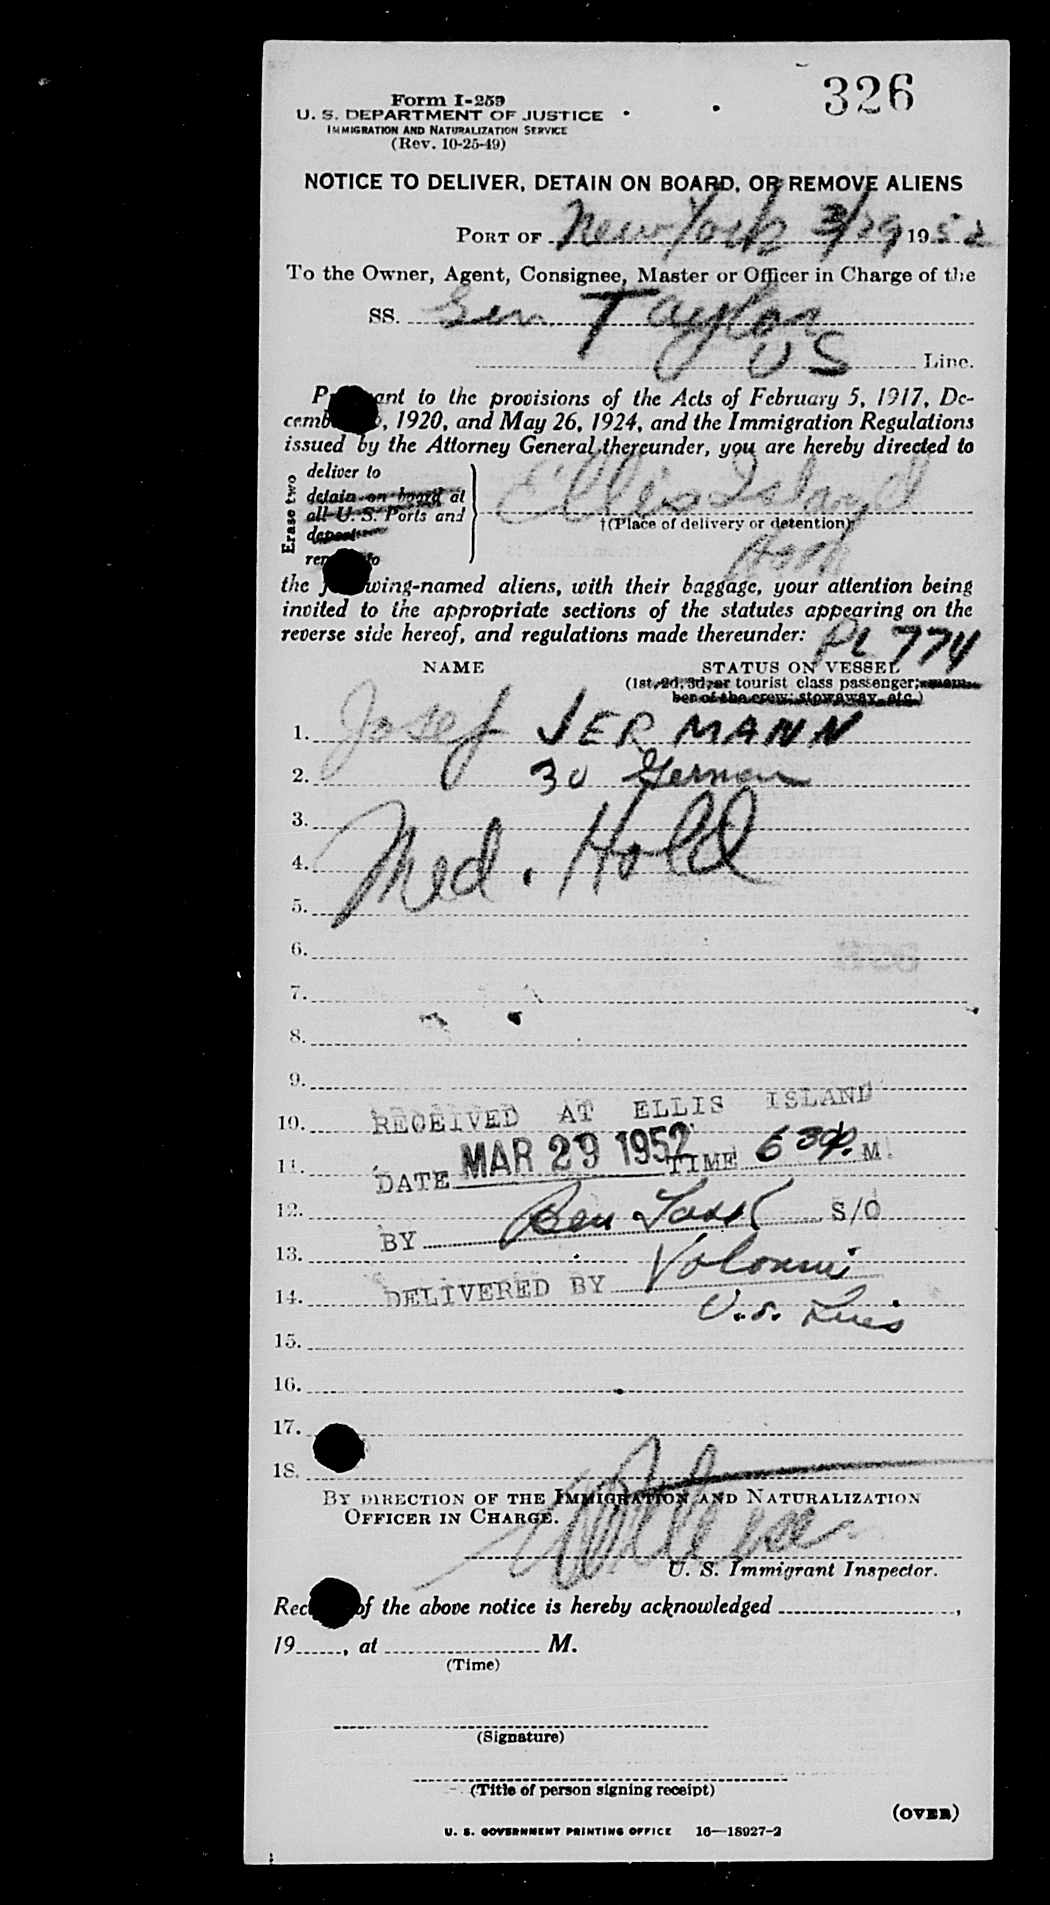 326
Form I-259
U. S. DEPARTMENT OF JUSTICE
IMMIGRATION AND NATURALIZATION SERVICE
(Rev. 10-25-49)
NOTICE TO DELIVER, DETAIN ON BOARD, OR REMOVE ALIENS
PORT OF New York 3/29 1952
To the Owner, Agent, Consignee, Master or Officer in Charge of the
SS. Gen Taylor
US Line.
ant to the provisions of the Acts of February 5, 1917, De-
cemb , 1920, and May 26, 1924, and the Immigration Regulations
issued by the Attorney General thereunder, you are hereby directed to
Erase two
deliver to
detain on board at
all U. S. Ports and
deport
re to
Ellis Island
†(Place of delivery or detention)
the wing-named aliens, with their baggage, your attention being
invited to the appropriate sections of the statutes appearing on the
reverse side hereof, and regulations made thereunder:
PL 774
NAME STATUS ON VESSEL
(1st, 2d, 3d, or tourist class passenger; mem-
ber of the crew; stowaway, etc.)
1. Josef JERMANN
2. 30 German
3.
4. Med. Hold
5.
6.
7.
8.
9.
RECEIVED AT ELLIS ISLAND
10.
11. DATE MAR 29 1952 TIME 6 30 P. M.
12. BY Ben S/O
13.
14. DELIVERED BY
U.S. Lines
15.
16.
17.
18.
BY DIRECTION OF THE IMMIGRATION AND NATURALIZATION
OFFICER IN CHARGE.
U. S. Immigrant Inspector.
Rec of the above notice is hereby acknowledged ,
19 , at M.
(Time)
(Signature)
(Title of person signing receipt)
(OVER)
U. S. GOVERNMENT PRINTING OFFICE 16—18927-2